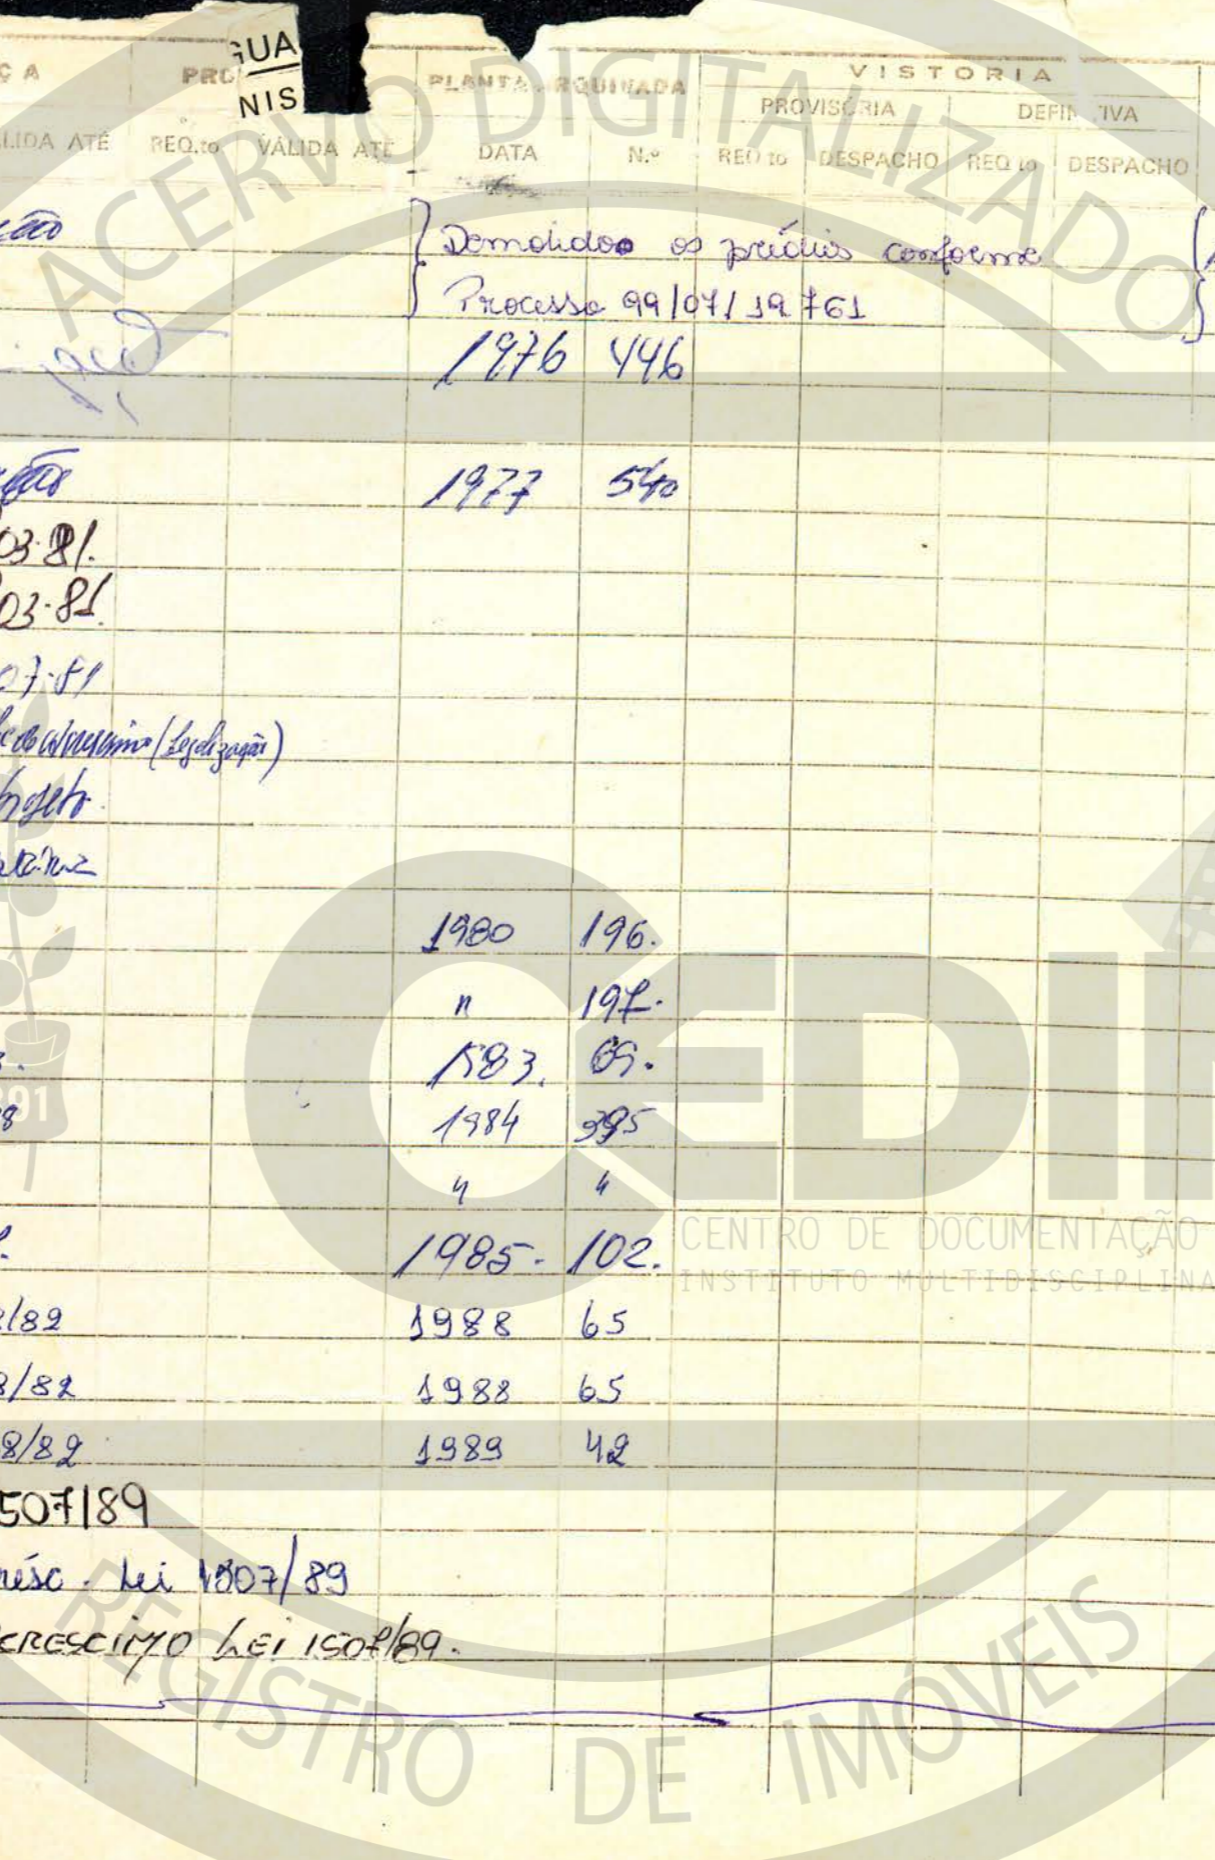 GUA
NIS
Ç A PRO PLANTA ARQUIVADA VISTORIA
PROVISÓRIA DEFINITIVA
ÁLIDA ATÉ REQ.to VÁLIDA ATÉ DATA N.º REQ to DESPACHO REQ to DESPACHO
Demolidos os prédios conforme
Processo 99/07/19761
1976 446
1977 540
03.81.
03.81.
07.81
(Legalização)
1980 196.
" 197.
1983. 69.
8 1984 395
" "
1985. 102.
/82 1988 65
8/82 1988 65
8/82 1989 42
507/89
résc. Lei 1507/89
CRESCIMO LEI 1507/89.
ACERVO DIGITALIZADO
CEDI
CENTRO DE DOCUMENTAÇÃO
INSTITUTO MULTIDISCIPLINA
REGISTRO DE IMÓVEIS